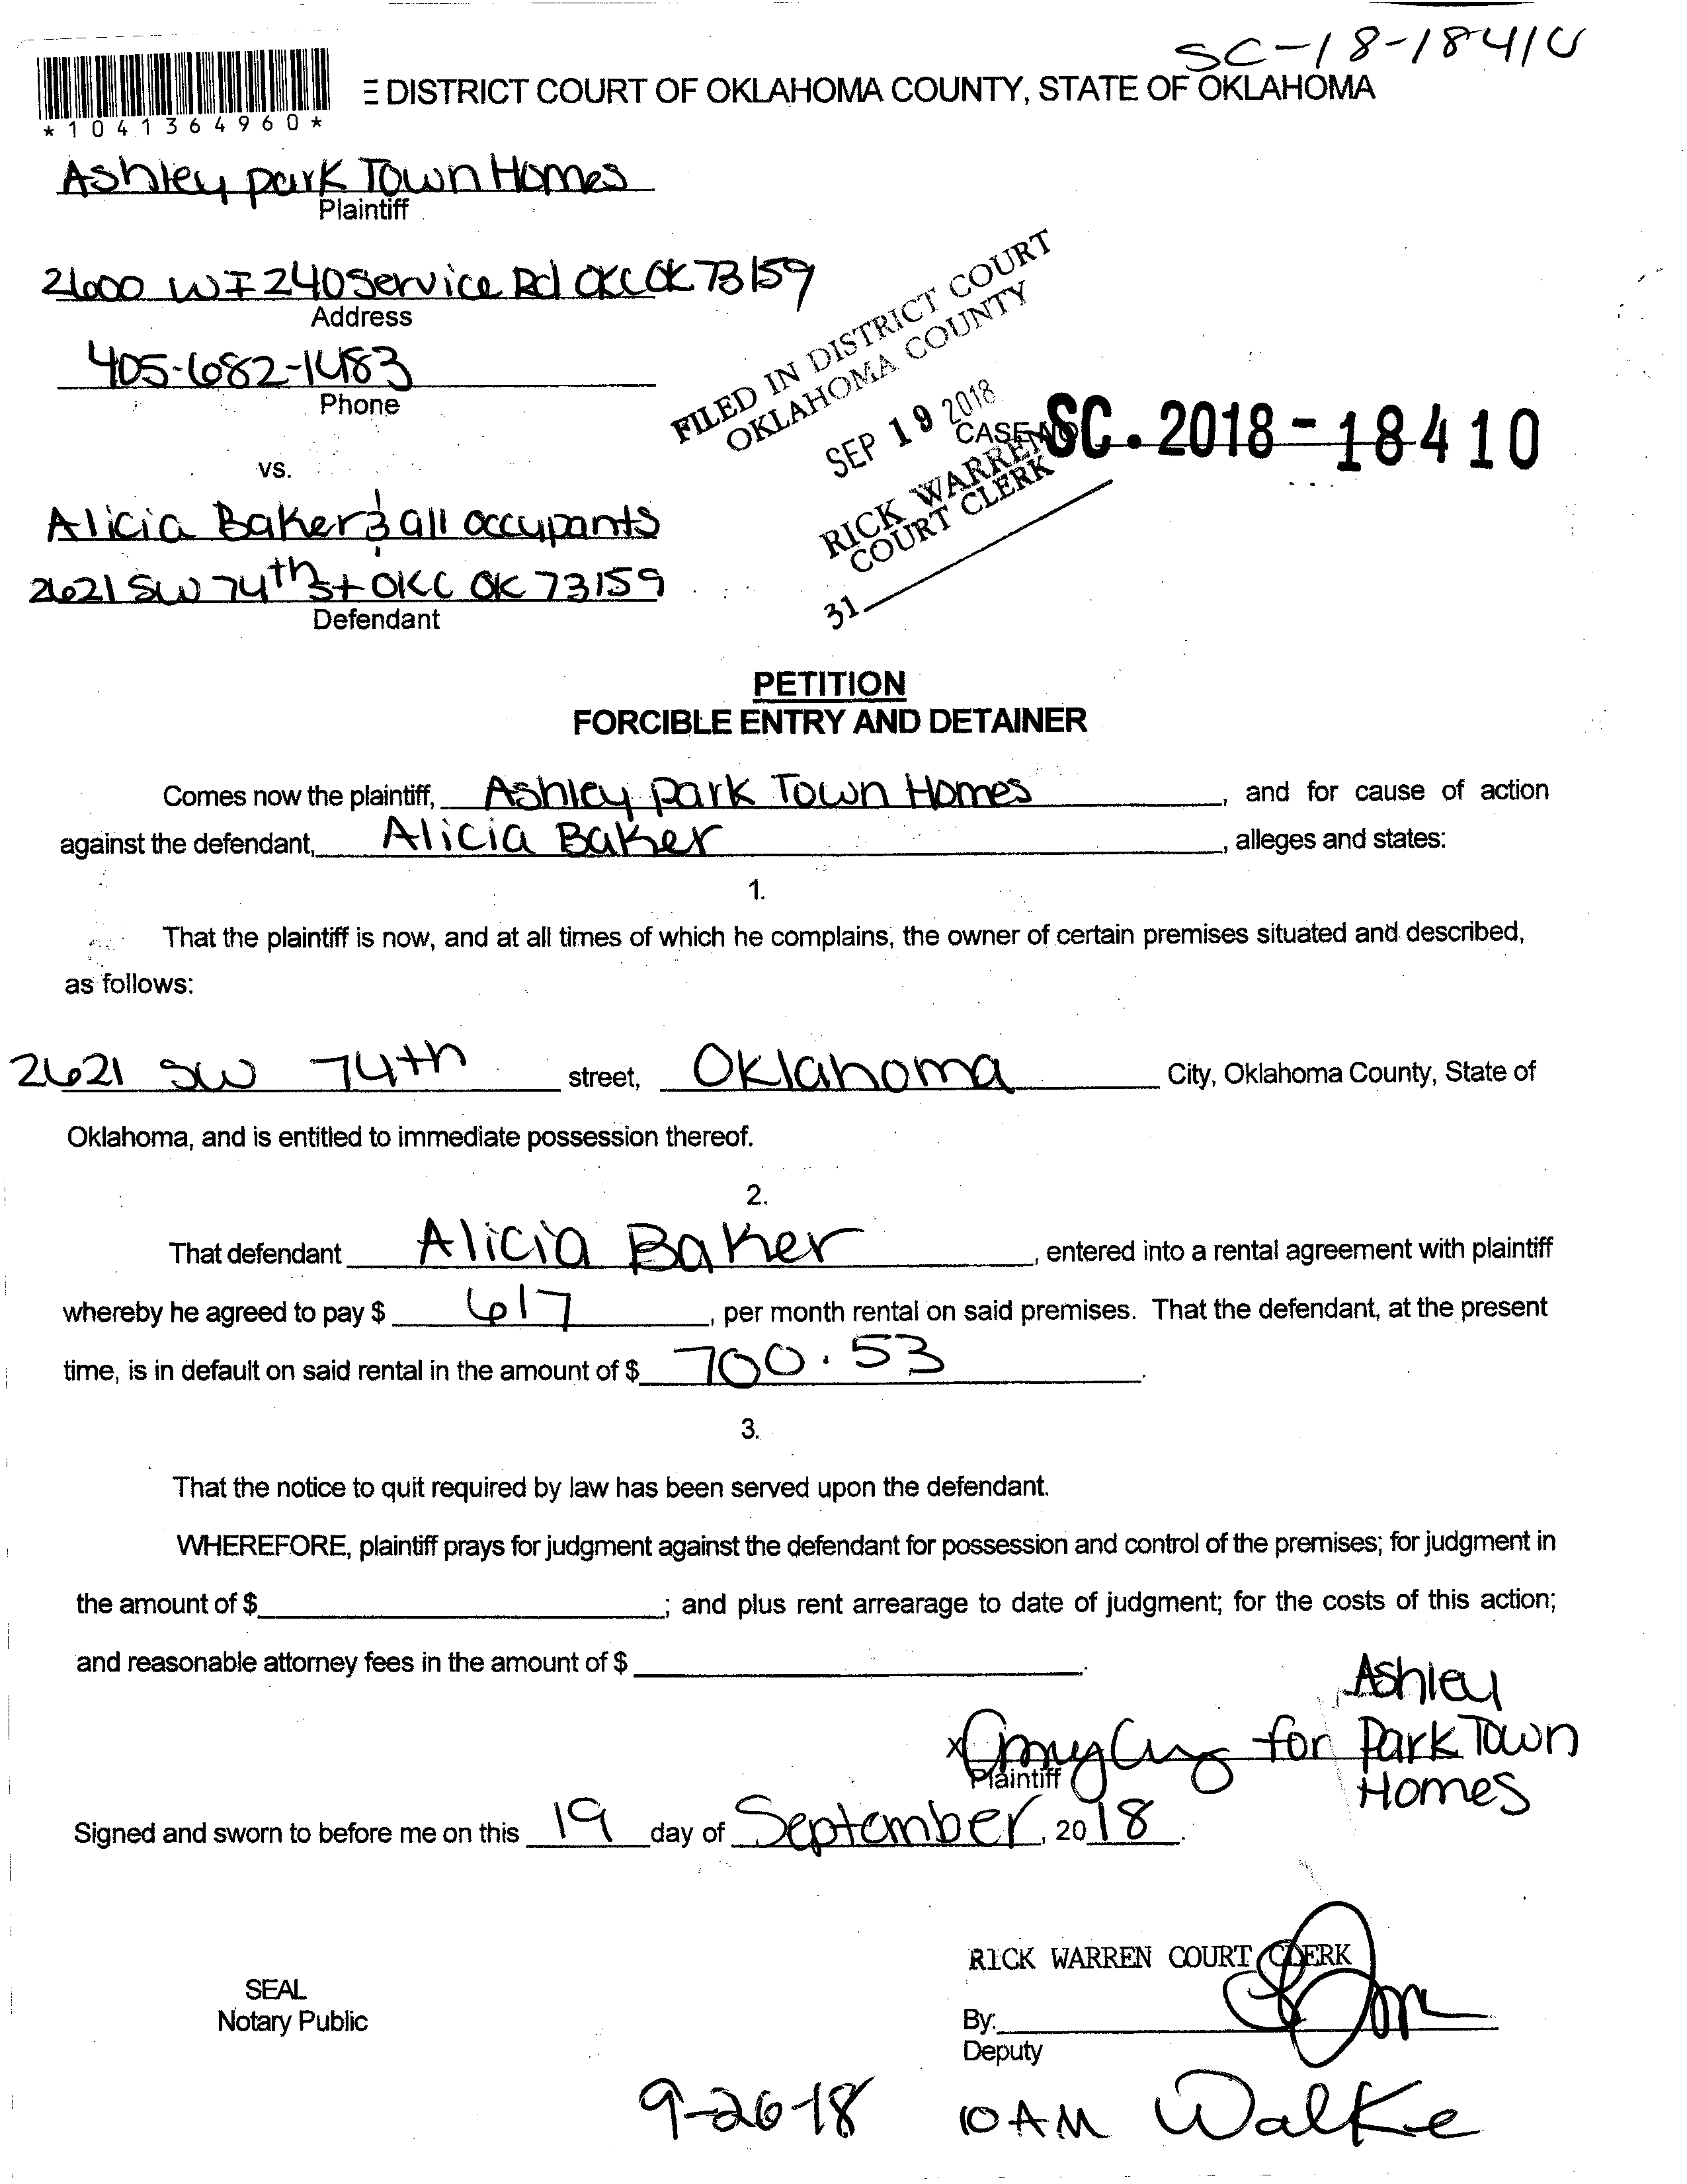 SC-18-18410
E DISTRICT COURT OF OKLAHOMA COUNTY, STATE OF OKLAHOMA
*1041364960*
Ashley park Town Homes
Plaintiff
2600 W I 240 Service Rd OKC OK 73159
Address
405-682-1483
Phone
FILED IN DISTRICT COURT
OKLAHOMA COUNTY
SEP 19 2018
RICK WARREN
COURT CLERK
31
CASE NO SC-2018-18410
vs.
Alicia Baker & all occupants
2621 SW 74th St OKC OK 73159
Defendant
PETITION
FORCIBLE ENTRY AND DETAINER
Comes now the plaintiff, Ashley park Town Homes, and for cause of action
against the defendant, Alicia Baker, alleges and states:
1.
That the plaintiff is now, and at all times of which he complains, the owner of certain premises situated and described,
as follows:
2621 SW 74th street, Oklahoma City, Oklahoma County, State of
Oklahoma, and is entitled to immediate possession thereof.
2.
That defendant Alicia Baker, entered into a rental agreement with plaintiff
whereby he agreed to pay $ 617, per month rental on said premises. That the defendant, at the present
time, is in default on said rental in the amount of $ 700.53.
3.
That the notice to quit required by law has been served upon the defendant.
WHEREFORE, plaintiff prays for judgment against the defendant for possession and control of the premises; for judgment in
the amount of $ ; and plus rent arrearage to date of judgment; for the costs of this action;
and reasonable attorney fees in the amount of $ .
x for Ashley Park Town Homes
Plaintiff
Signed and sworn to before me on this 19 day of September, 2018.
RICK WARREN COURT CLERK
SEAL
Notary Public
By:
Deputy
9-26-18 10 AM Walke